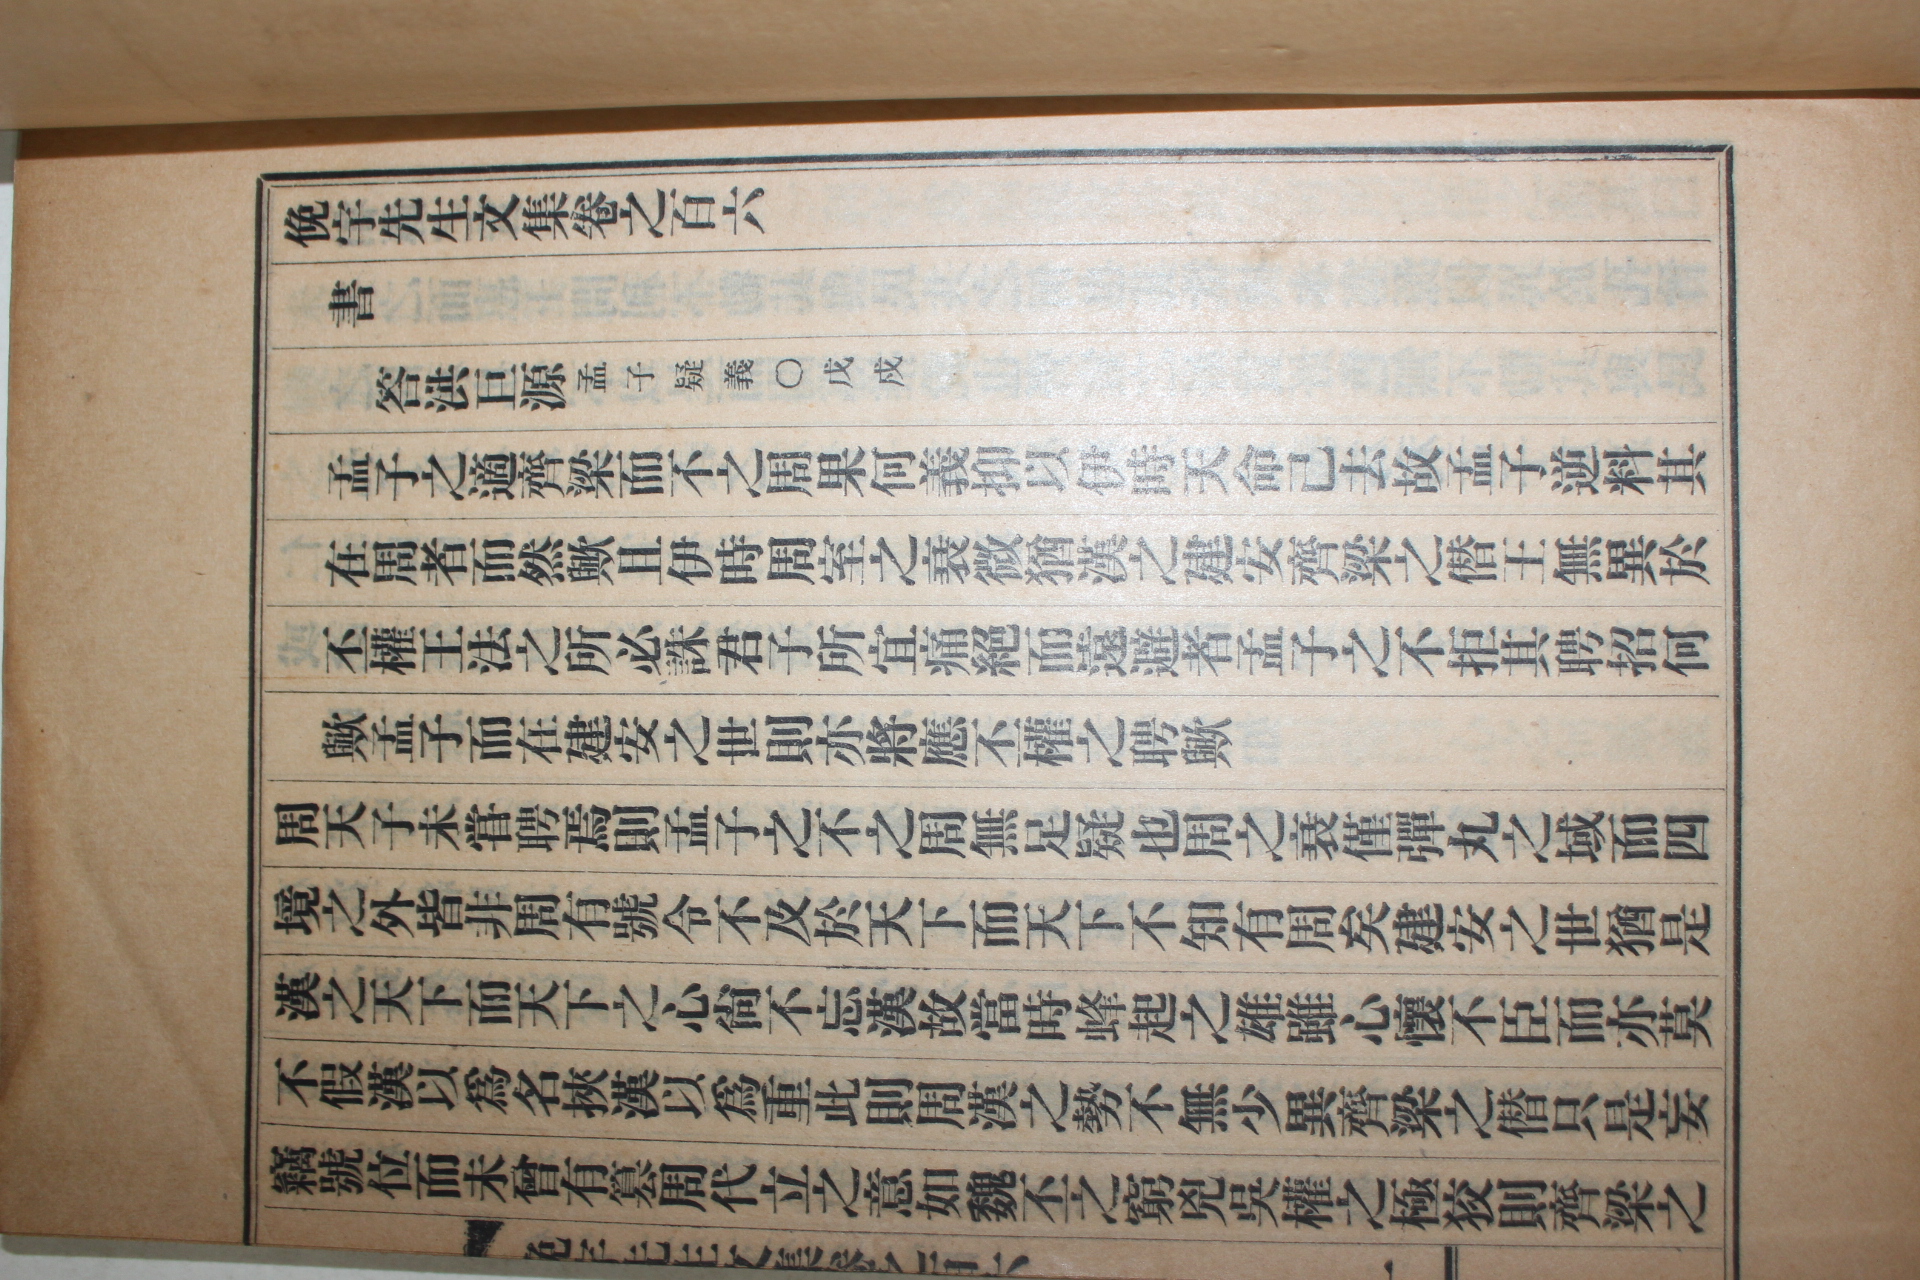 俛宇先生文集卷之百六
書
答洪巨源孟子疑義〇戊戌
孟子之適齊梁而不之周果何義抑以伊時天命已去故孟子逆料其
在周者而然歟且伊時周室之衰微猶漢之建安齊梁之僭王無異於
丕權王法之所必誅君子所宜痛絕而遠避者孟子之不拒其聘招何
歟孟子而在建安之世則亦將應丕權之聘歟
周天子未甞聘焉則孟子之不之周無足疑也周之衰僅彈丸之域而四
境之外皆非周有號令不及於天下而天下不知有周矣建安之世猶是
漢之天下而天下之心尙不忘漢故當時蜂起之雄雖心懷不臣而亦莫
不假漢以爲名挾漢以爲重此則周漢之勢不無少異齊梁之僭只是妄
竊號位而未曾有簒周代立之意如魏丕之窮兇吳權之極狡則齊梁之
俛宇先生文集卷之百六